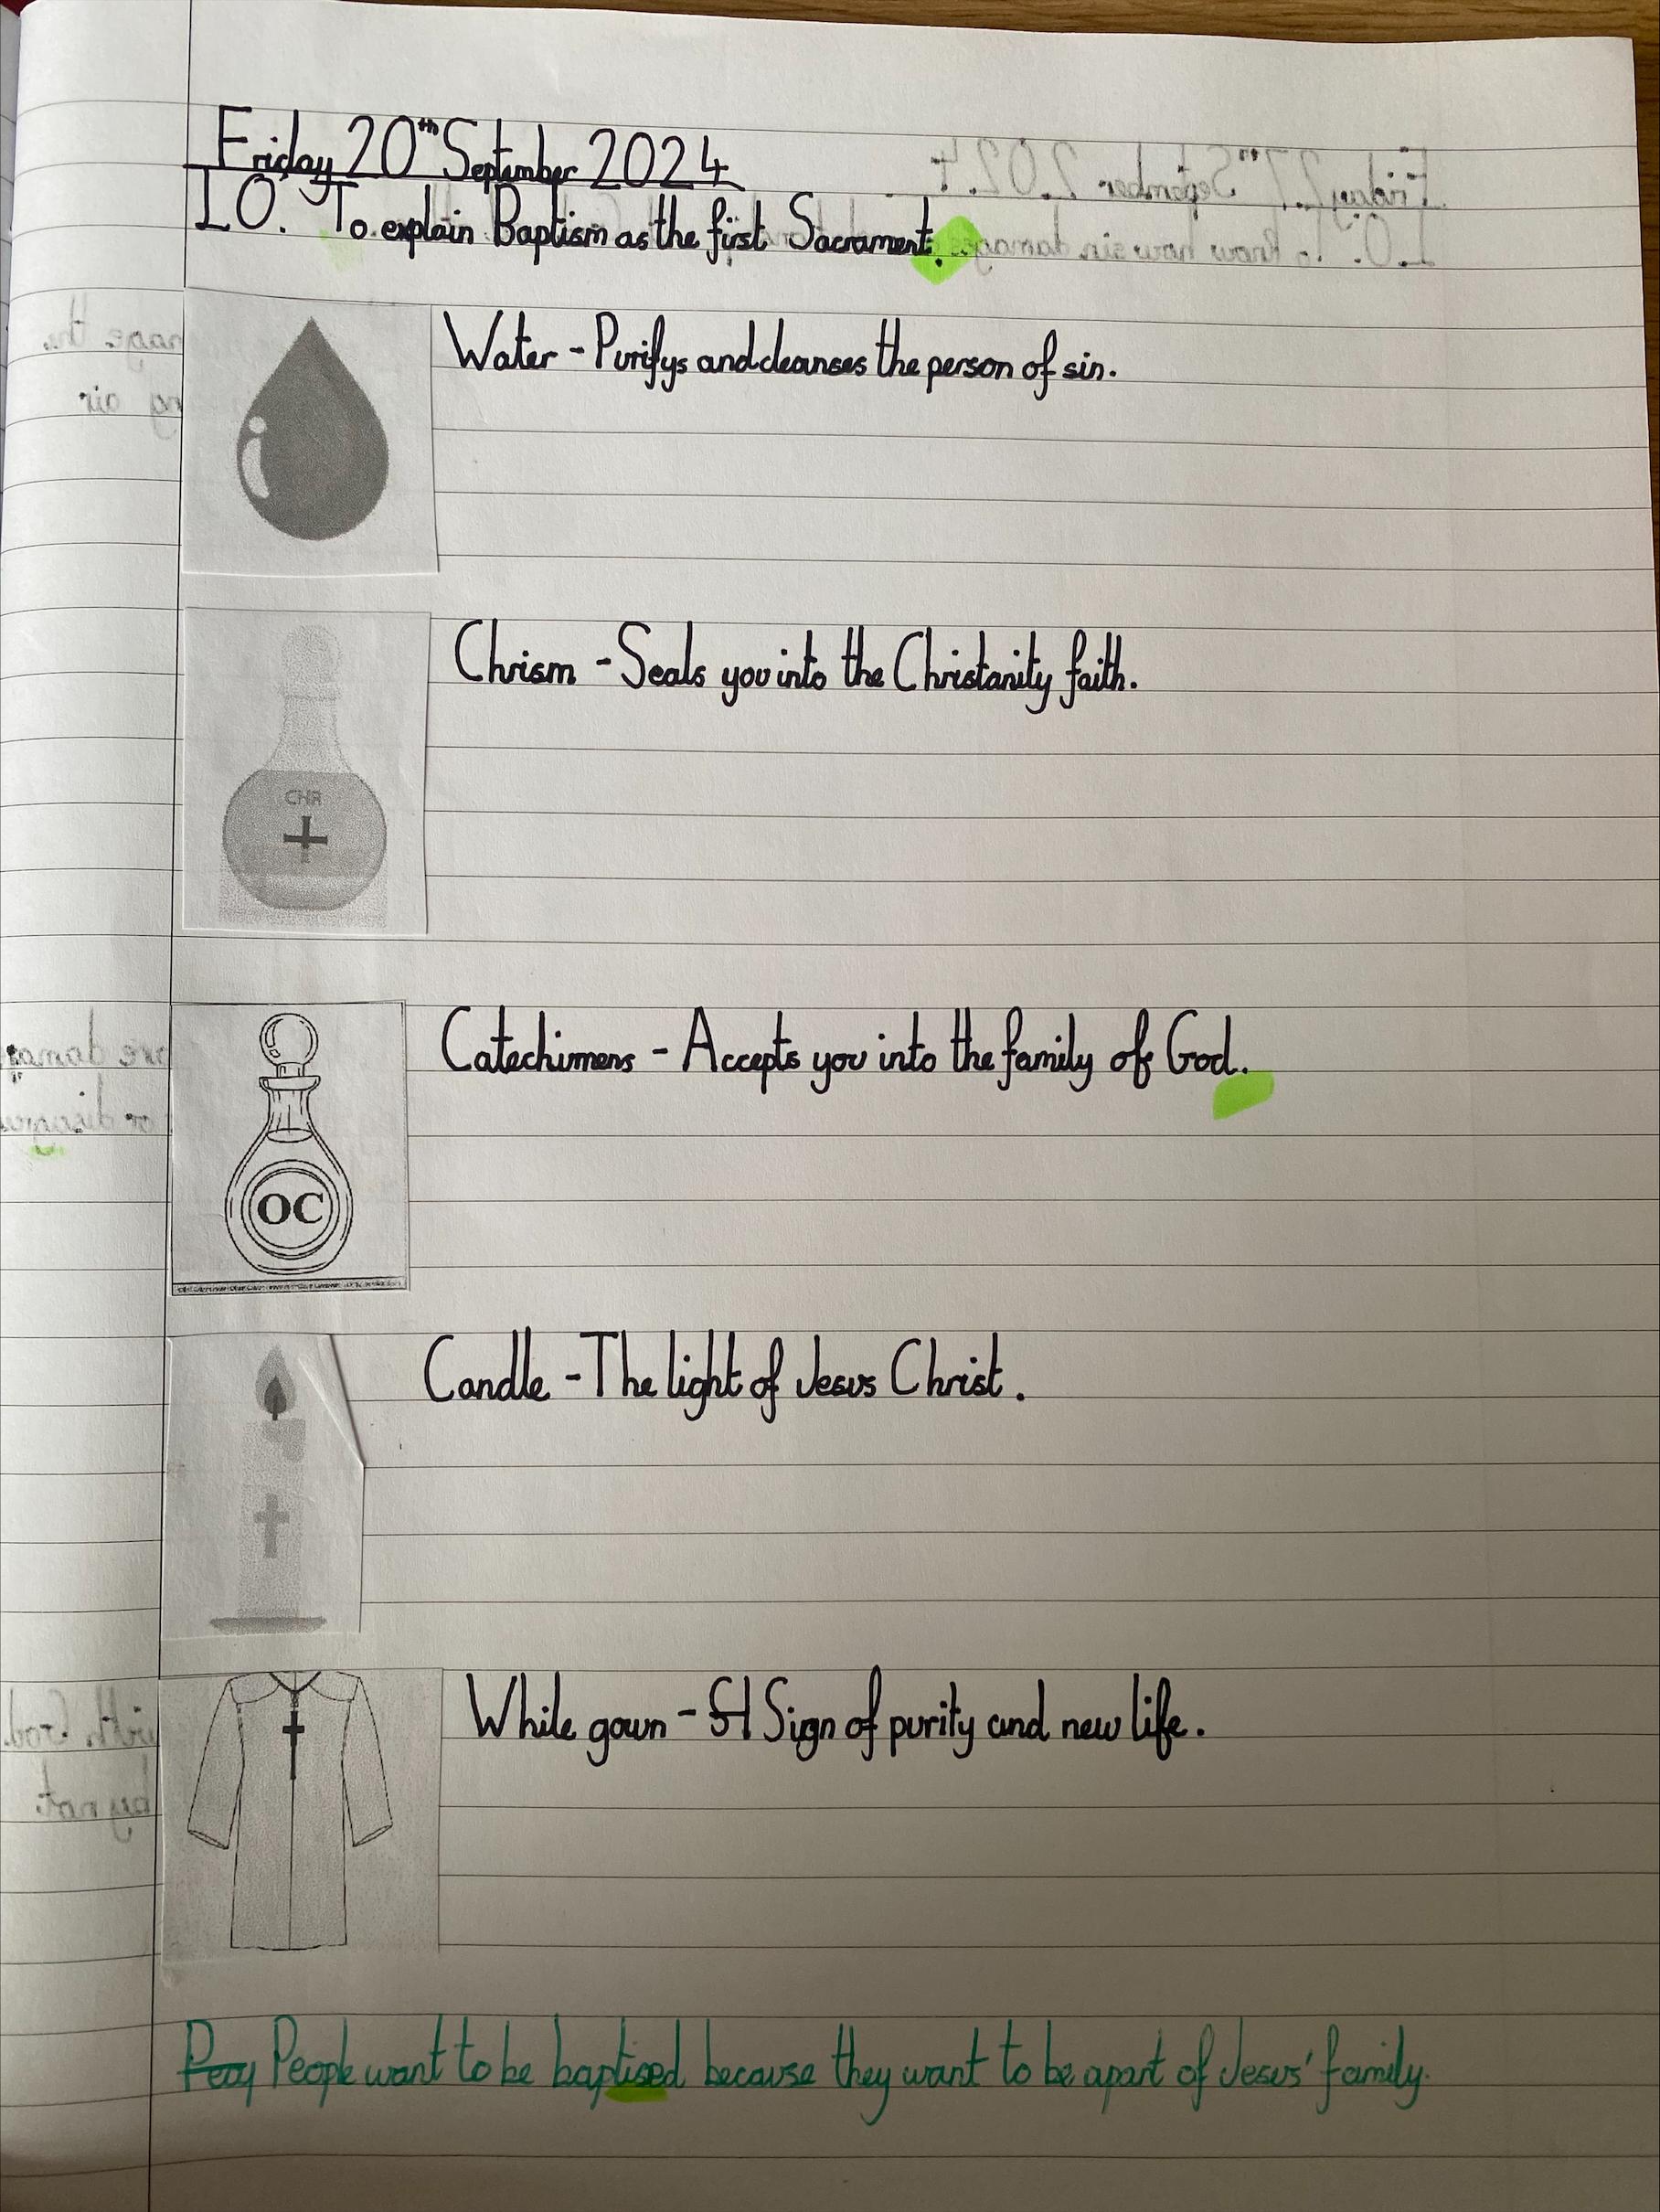 Friday 20th September 2024
LO. To explain Baptism as the first Sacrament.
Water - Purifys and cleanses the person of sin.
Chrism - Seals you into the Christanity faith.
CHR
Catechimens - Accepts you into the family of God.
OC
Candle - The light of Jesus Christ.
While gown - Sign of purity and new life.
People want to be baptised because they want to be apart of Jesus' family.